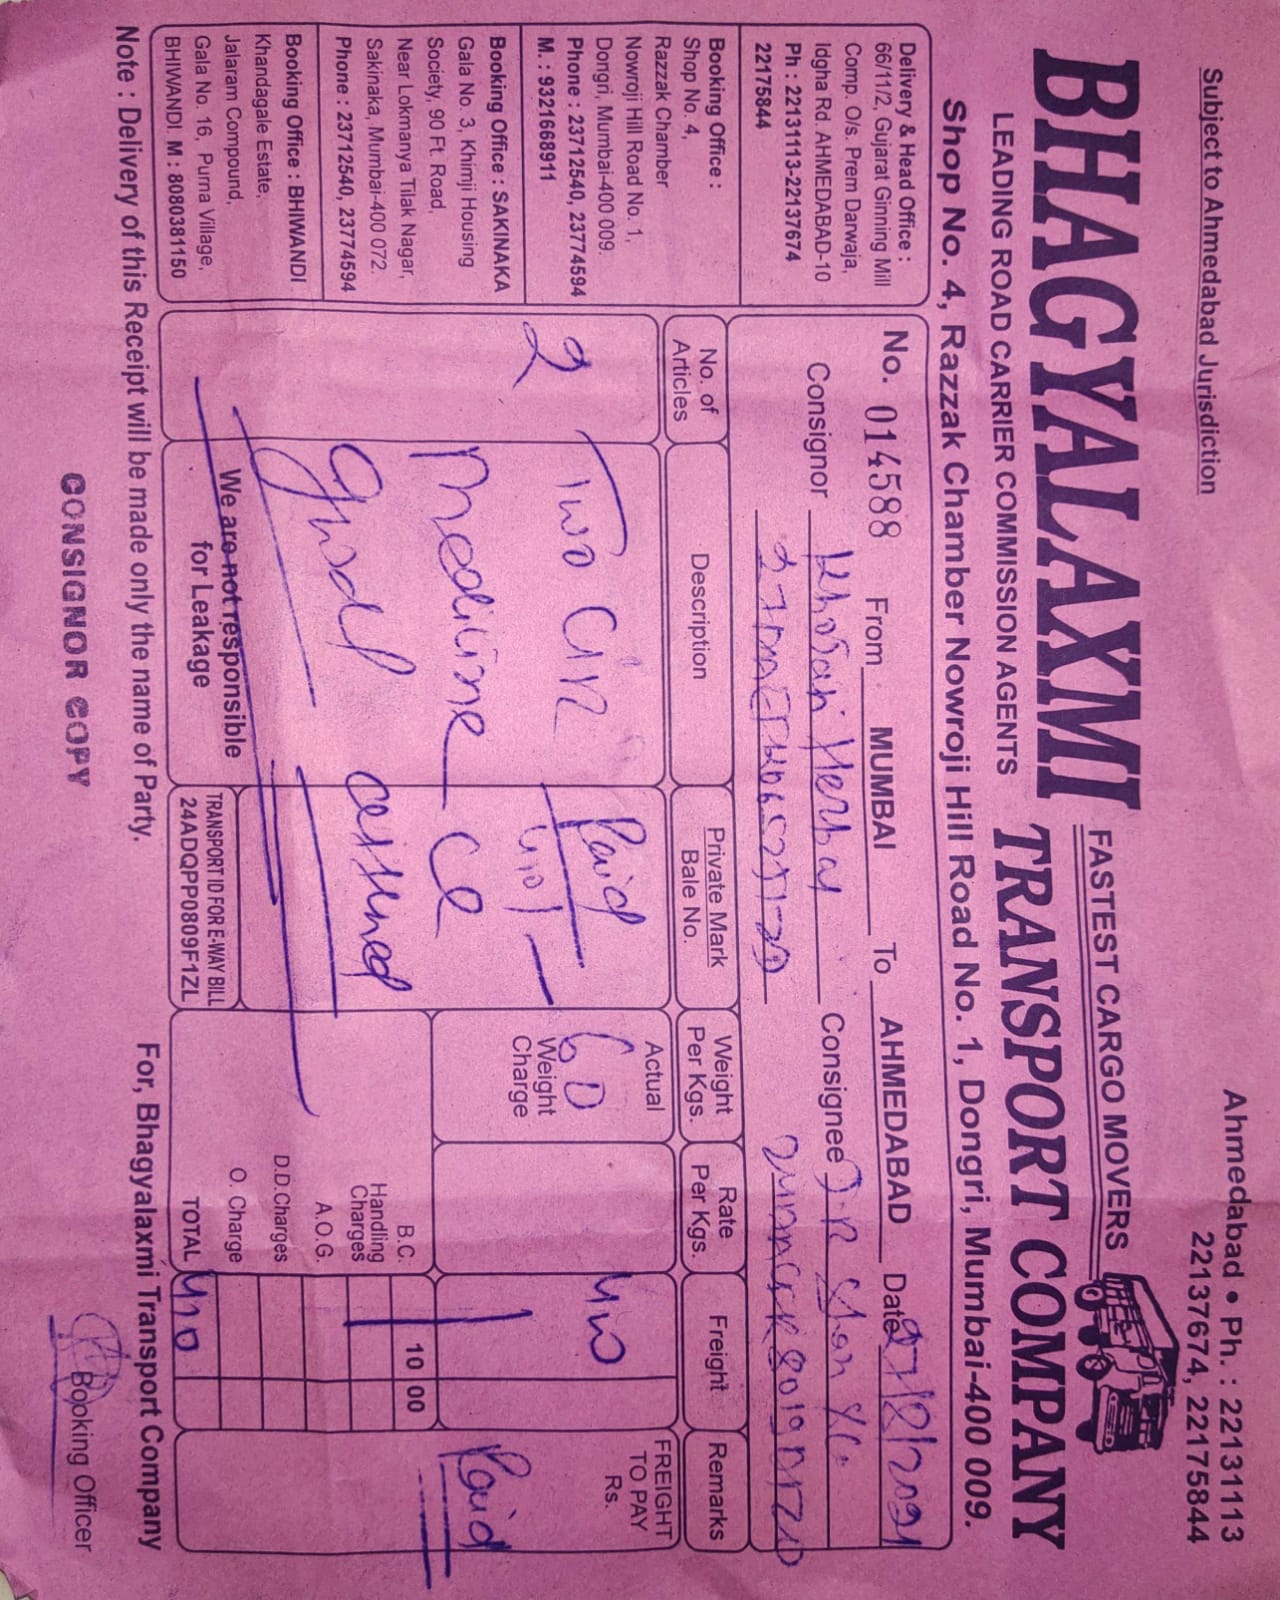 Subject to Ahmedabad Jurisdiction
Ahmedabad • Ph. : 22131113
22137674, 22175844
FASTEST CARGO MOVERS
BHAGYALAXMI TRANSPORT COMPANY
LEADING ROAD CARRIER COMMISSION AGENTS
Shop No. 4, Razzak Chamber Nowroji Hill Road No. 1, Dongri, Mumbai-400 009.
Delivery & Head Office :
66/11/2, Gujarat Ginning Mill
Comp. O/s. Prem Darwaja,
Idgha Rd. AHMEDABAD-10
Ph : 22131113-22137674
22175844
Booking Office :
Shop No. 4,
Razzak Chamber
Nowroji Hill Road No. 1,
Dongri, Mumbai-400 009.
Phone : 23712540, 23774594
M. : 9321668911
Booking Office : SAKINAKA
Gala No. 3, Khimji Housing
Society, 90 Ft. Road,
Near Lokmanya Tilak Nagar,
Sakinaka, Mumbai-400 072.
Phone : 23712540, 23774594
Booking Office : BHIWANDI
Khandagale Estate,
Jalaram Compound,
Gala No. 16, Purna Village,
BHIWANDI. M : 8080381150
No. 014588 From MUMBAI To AHMEDABAD Date
Consignor Herbal Consignee
No. of Articles
Description
Private Mark
Bale No.
Weight Per Kgs.
Rate Per Kgs.
Freight
Remarks
2
Two
Paid
Actual
60
Weight Charge
FREIGHT TO PAY Rs.
Paid
Medicine
B.C. 10 00
Handling Charges
A.O.G.
D.D.Charges
O. Charge
TOTAL
We are not responsible
for Leakage
TRANSPORT ID FOR E-WAY BILL
24ADQPP0809F1ZL
Note : Delivery of this Receipt will be made only the name of Party.
For, Bhagyalaxmi Transport Company
CONSIGNOR COPY
Booking Officer